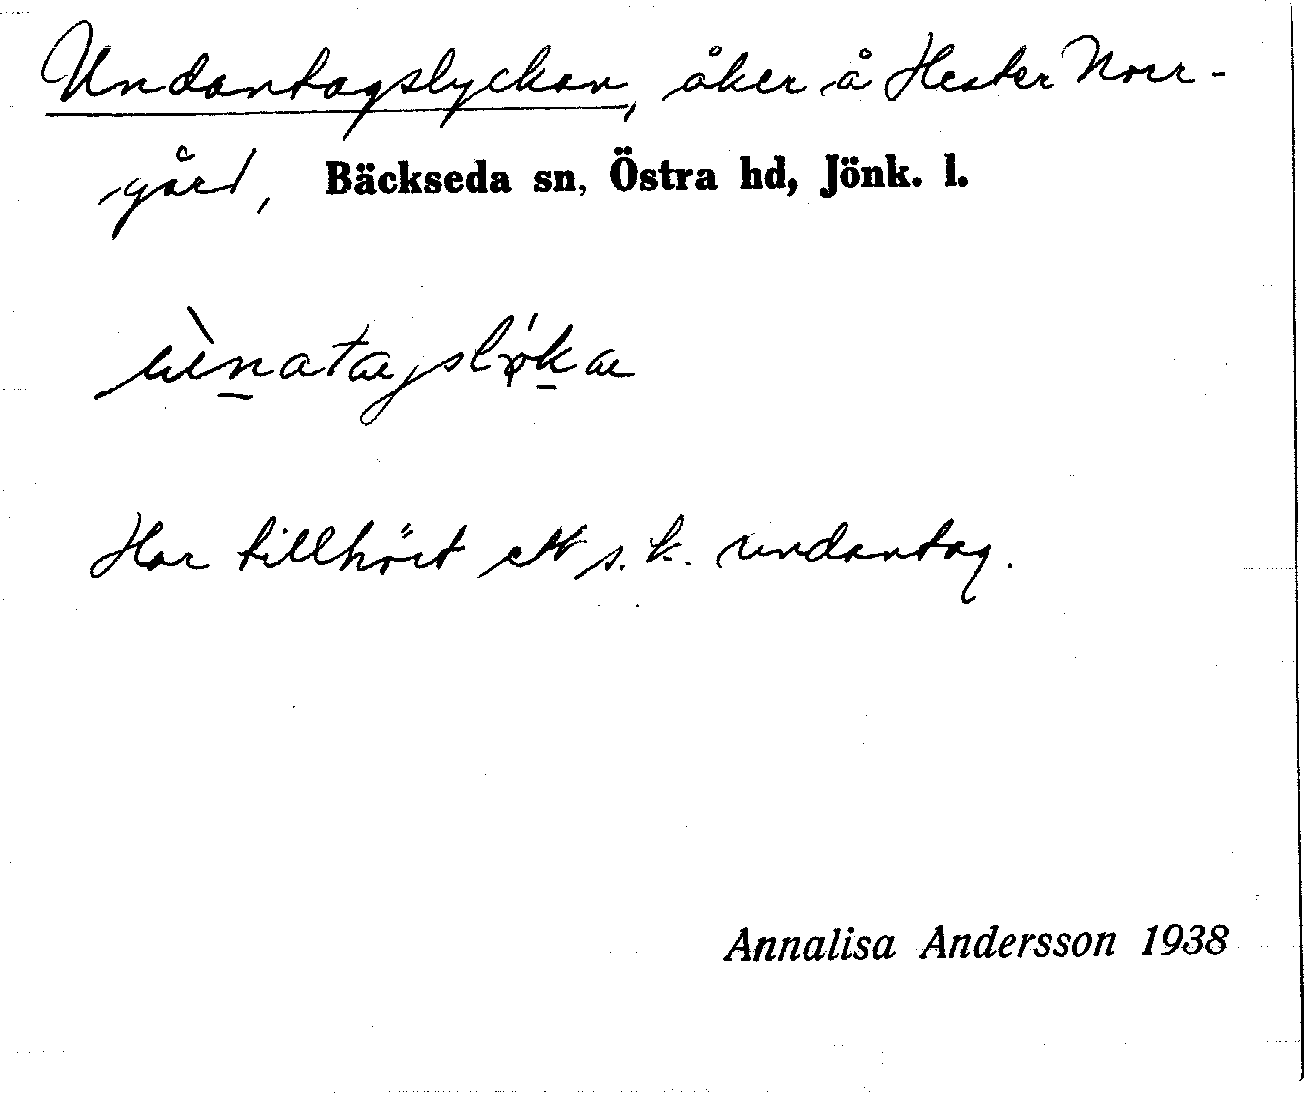 Undantagslyckan, åker å Hester Norr-
gård, Bäckseda sn, Östra hd, Jönk. l.
ùnatagsløka
Har tillhört ett s.k. undantag.
Annalisa Andersson 1938